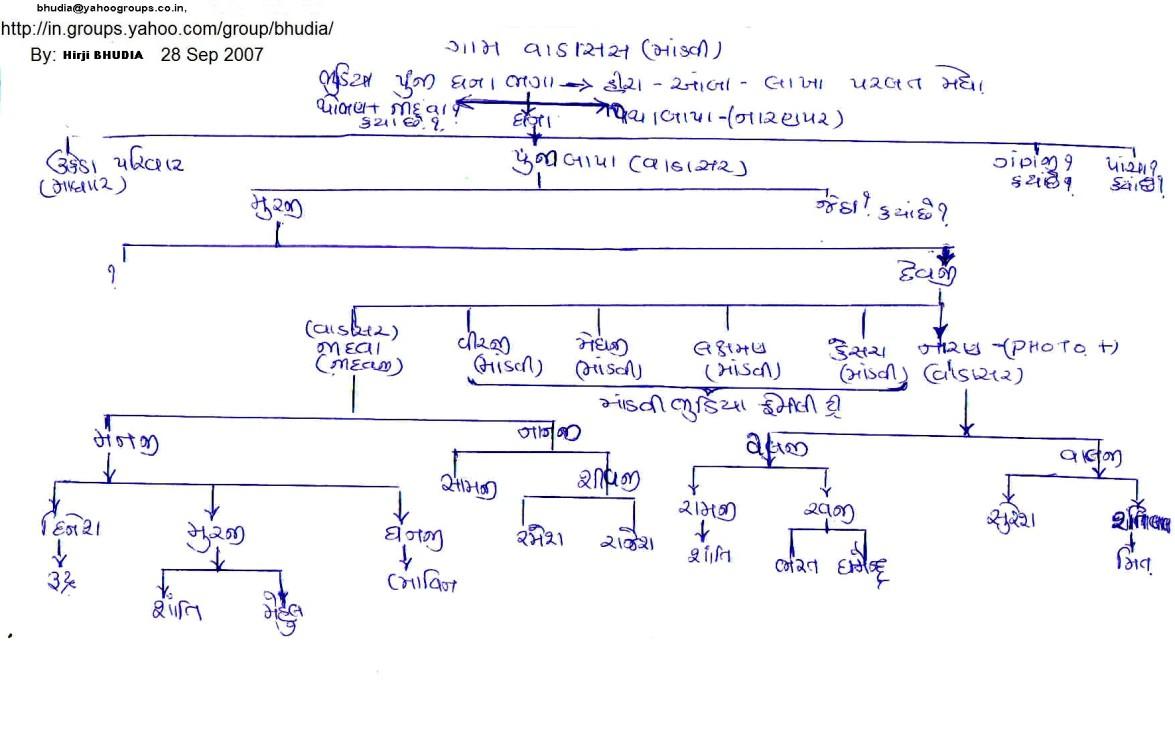 bhudia@yahoogroups.co.in,
http://in.groups.yahoo.com/group/bhudia/
By: Hirji BHUDIA 28 Sep 2007
ગામ વાડાસર (માંડવી)
ભુડિયા પુંજા ધના ભગા → હીરા - આંબા - લાખા પરબત મેઘા
જાદવા? પચા બાપા-(નારણપર)
કયાં છે? ધના
પરિવાર પુંજા બાપા (વાડાસર) ગાંગજી? પાંચા?
(માધાપર) કયાંછે? કયાંછે?
મુરજી જેઠા? કયાંછે?
? દેવજી
(વાડાસર)
જાદવા વીરજી મેઘજી લક્ષમણ કેસરા નારણ -(PHOTO +)
(જાદવજી) (માંડવી) (માંડવી) (માંડવી) (માંડવી) (વાડાસર)
માંડવી ભુડિયા ફેમીલી ટ્રી
મનજી નાનજી વેલજી વાલજી
સામજી શીવજી
દિનેશ મુરજી ધનજી રમેશ રાજેશ રામજી રવજી સુરેશ
રૂદ્ર ભાવિન શાંતિ ભરત ધર્મેન્દ્ર મિત
શાંતિ મેહુલ